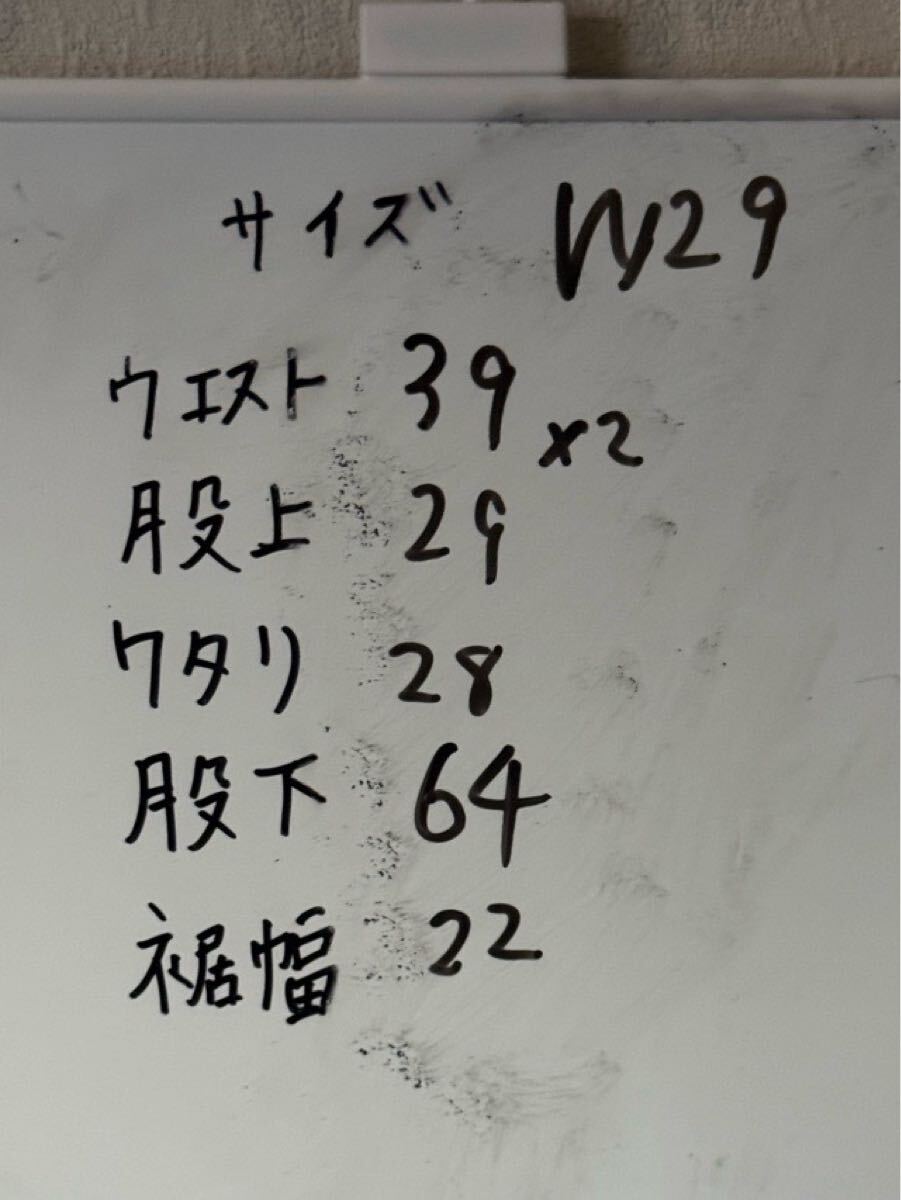 サイズ W29
ウエスト 39 x2
股上 29
ワタリ 28
股下 64
裾幅 22